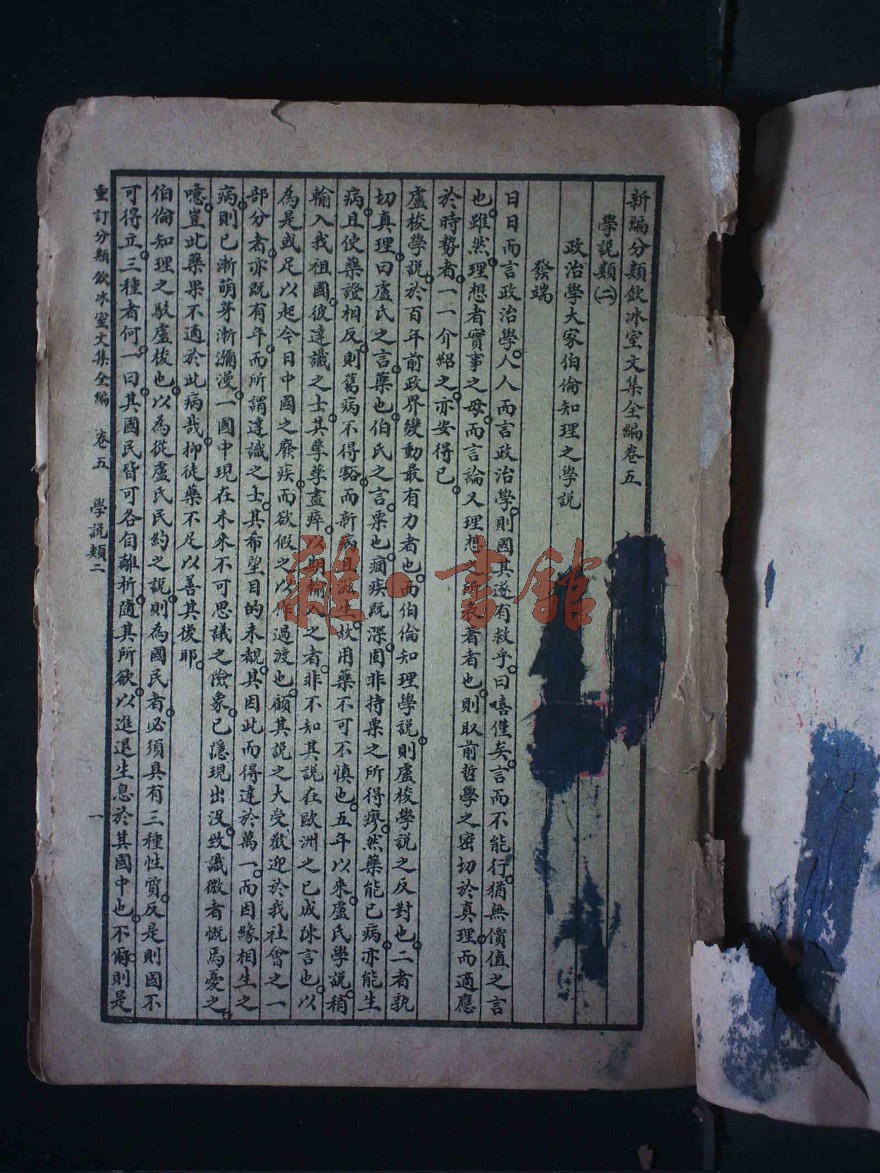 新編分類飲冰室文集全編卷五
學說類(二)
政治學大家伯倫知理之學說
發端
日日而言政治學。人人而言政治學。則國其遂有救乎。曰嘻僅矣。言而不能行。猶無價值之言
也。雖然。理想者實事之母。而言論又理想之所表者也。則取前哲學之密切於真理。而適應
於時勢者。一一介紹之。亦安得已。
盧梭學說。於百年前政界變動最有力者也。而伯倫知理學說。則盧梭學說之反對也。二者孰
切真理。曰盧氏之言藥也。伯氏之言粟也。痼疾既深。固非恃粟之所得瘳。然藥能已病。亦能生
病。且使藥證相反。則舊病不得豁。而新病且滋生。故用藥不可不慎也。五年以來。盧氏學說。稍
輸入我祖國。彼達識之士。其孳孳盡瘁。以期輸入之者。非不知其說在歐洲之已成陳言也。以
為是或足以起今日中國之廢疾。而欲假之以作過渡也。顧其說之大受歡迎於我社會之一
部分者。亦既有年。而所謂達識之士。其希望目的未覩其因此而得達於萬一。而因緣相生之
病。則已漸萌芽漸瀰漫。一國中現在未來不可思議之險象。已隱現出沒。致識微者慨焉憂之。
噫。豈此藥果不適於此病哉。抑徒藥不足以善其後耶。
伯倫知理之駁盧梭也。以為從盧氏民約之說。則為國民者。必須具有三種性質。反是則國不
可得立。三種者何。一曰其國民皆可各自離析。隨其所欲。以進退生息於其國中也。不爾。則是
重訂分類飲冰室文集全編　卷五　學說類二
一
雜·書館